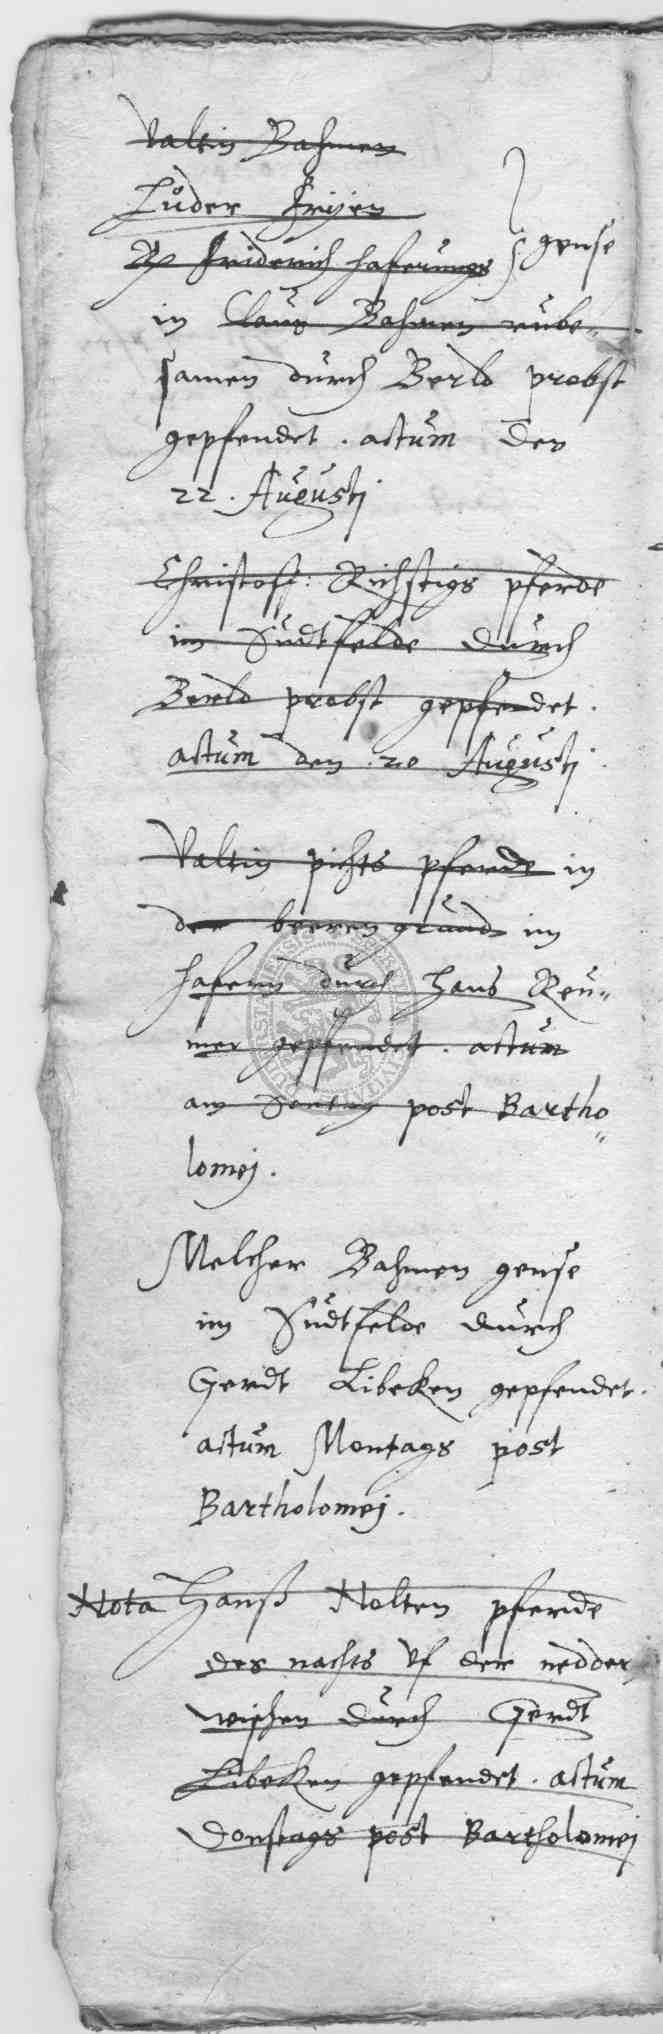 Valtin Bahmen
Luder Frijen
Friderich Haferungs gense
in Claus Bahmen rube-
samen durch Berld probst
gepfendet . actum den
22. Augustj
Christoff: Richstigs pferde
im Sudtfelde durch
Berld probst gepfendet.
actum den 20 Augustj
Valtin pichts pferde in
der beeren grund im
hafern durch Hans Reu-
mer gepfendet . actum
am post Bartho
lomej.
Melcher Bahmen gense
im Sudtfelde durch
Gerdt Libeken gepfendet.
actum Montags post
Bartholomej.
Nota Hanß Nolten pferde
des nachts vf der nedder
wischen durch Gerdt
Libeken gepfendet . actum
Donstags post Bartholomej